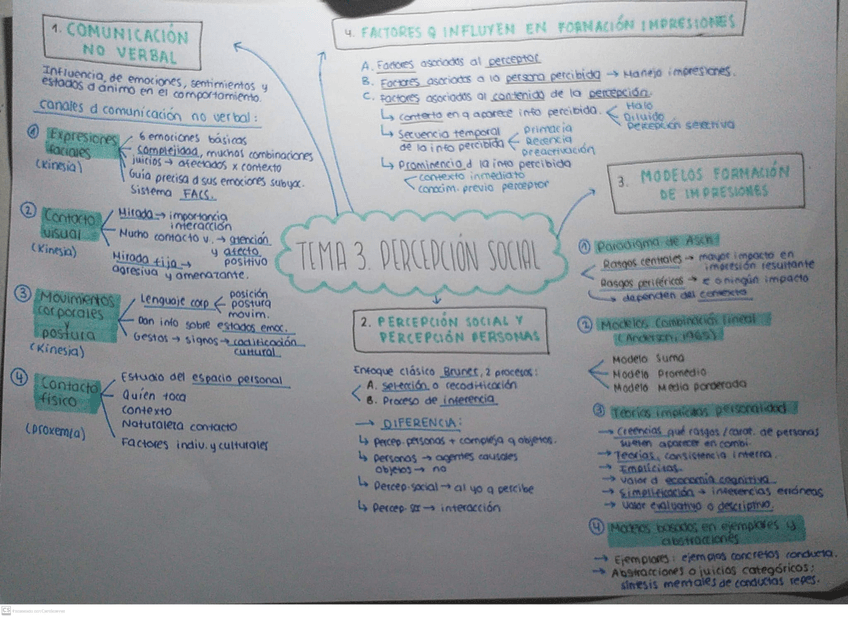 1. COMUNICACIÓN
NO VERBAL
Influencia, de emociones, sentimientos y
estados d animo en el comportamiento.
canales d comunicación no verbal:
① Expresiones
faciales
(kinesia)
6 emociones básicas
complejidad, muchos combinaciones
juicios → afectados x contexto
Guia precisa d sus emociones subyac.
Sistema FACS.
② Contacto
visual
(kinesia)
Mirada → importancia
interacción
Mucho contacto v. → atención
y afecto
positivo
Mirada fija →
agresiva y amenazante.
③ Movimientos
corporales
y
postura
(kinesia)
Lenguaje corp
posición
postura
movim.
Dan info sobre estados emoc.
Gestos → signos → codificación
cultural
④ Contacto
físico
(proxemia)
Estudio del espacio personal
Quien toca
contexto
Naturaleza contacto
Factores indiv. y culturales
TEMA 3. PERCEPCIÓN SOCIAL
2. PERCEPCIÓN SOCIAL Y
PERCEPCIÓN PERSONAS
Enfoque clásico Bruner, 2 procesos:
A. selección o recodificación
B. Proceso de inferencia
→ DIFERENCIA:
↳ Percep. personas + compleja q objetos.
↳ Personas → agentes causales
objetos → no
↳ Percep. social → al yo q percibe
↳ Percep. → interacción
4. FACTORES Q INFLUYEN EN FORMACIÓN IMPRESIONES
A. Factores asociados al perceptor
B. Factores asociados a la persona percibida → Manejo impresiones.
C. Factores asociados al contenido de la percepción
↳ contexto en q aparece info percibida.
Halo
Diluido
Percepción selectiva
↳ Secuencia temporal
de la info percibida
Primacia
Recencia
Preactivación
↳ Prominencia d la info percibida
contexto inmediato
conocim. previo perceptor
3. MODELOS FORMACIÓN
DE IMPRESIONES
① Paradigma de Asch
Rasgos centrales → mayor impacto en
impresión resultante
Rasgos periféricos → o ningún impacto
→ dependen del contexto
② Modelos combinación lineal
(Anderson, 1965)
Modelo Suma
Modelo Promedio
Modelo Media ponderada
③ Teorías implícitas personalidad
→ Creencias qué rasgos/caract. de personas
suelen aparecer en combi.
→ Teorías. consistencia interna.
→ Emplícitas.
→ valor d economía cognitiva
→ Simplificación + inferencias erróneas
→ Valor evaluativo o descriptivo.
④ Modelos basados en ejemplares y
abstracciones
→ Ejemplares: ejemplos concretos conducta.
→ Abstracciones o juicios categóricos:
síntesis mentales de conductas repes.
CS